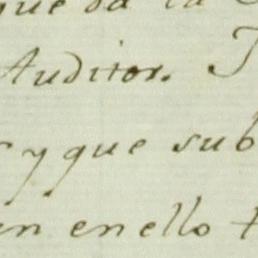 que da la
Auditor.
y que sub
en ello